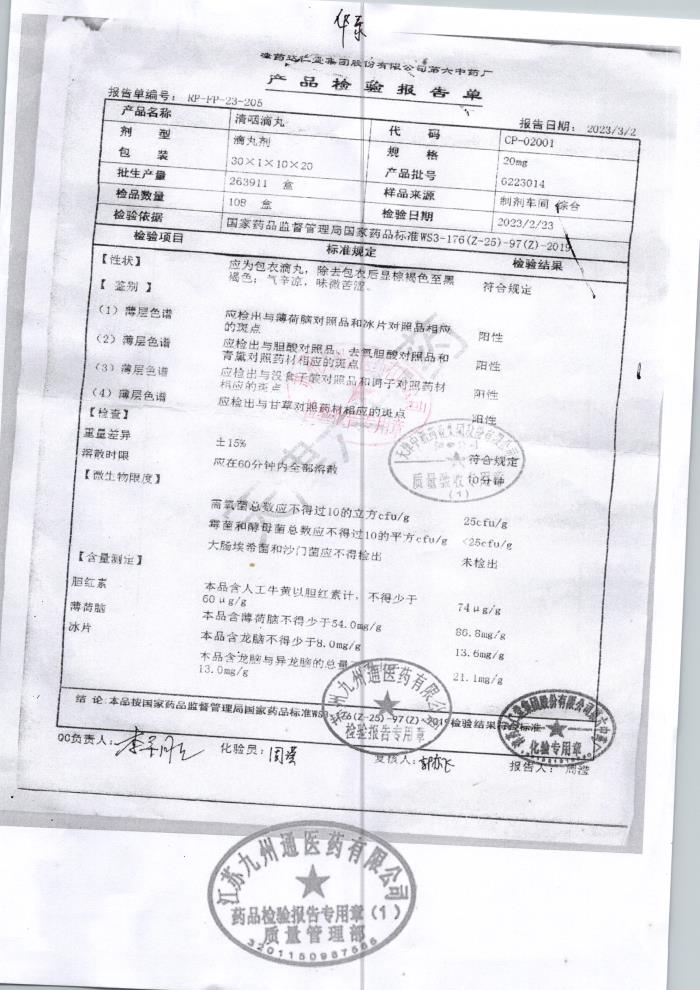 华东
津药达仁堂集团股份有限公司第六中药厂
产品检验报告单
报告单编号: RP-FP-23-205
报告日期: 2023/3/2
产品名称 清咽滴丸 代 码 CP-02001
剂 型 滴丸剂 规 格 20mg
包 装 30×1×10×20 产品批号 6223014
批生产量 263911 盒 样品来源 制剂车间 综合
检品数量 108 盒 检验日期 2023/2/23
检验依据 国家药品监督管理局国家药品标准WS3-176(Z-25)-97(Z)-2019
检验项目 标准规定 检验结果
【性状】 应为包衣滴丸，除去包衣后显棕褐色至黑 符合规定
褐色；气辛凉，味微苦涩。
【 鉴别 】
(1) 薄层色谱 应检出与薄荷脑对照品和冰片对照品相应 阳性
的斑点
(2) 薄层色谱 应检出与胆酸对照品、去氧胆酸对照品和 阳性
青黛对照药材相应的斑点
(3) 薄层色谱 应检出与没食子酸对照品和诃子对照药材 阳性
相应的斑点
(4) 薄层色谱 应检出与甘草对照药材相应的斑点 阳性
【检查】
重量差异 ±15% 符合规定
溶散时限 应在60分钟内全部溶散 10分钟
【微生物限度】
需氧菌总数应不得过10的立方cfu/g 25cfu/g
霉菌和酵母菌总数应不得过10的平方cfu/g <25cfu/g
大肠埃希菌和沙门菌应不得检出 未检出
【含量测定】
胆红素 本品含人工牛黄以胆红素计，不得少于 74μg/g
60μg/g
薄荷脑 本品含薄荷脑不得少于54.0mg/g 86.8mg/g
冰片 本品含龙脑不得少于8.0mg/g 13.6mg/g
本品含龙脑与异龙脑的总量 21.1mg/g
13.0mg/g
结 论:本品按国家药品监督管理局国家药品标准WS3-176(Z-25)-97(Z)-2019检验结果符合标准
QC负责人: 化验员: 周滢 复核人: 报告人: 周滢
质量验收专用章
(1)
九州通医药有限公司
检验报告专用章
化验专用章
江苏九州通医药有限公司
药品检验报告专用章(1)
质量管理部